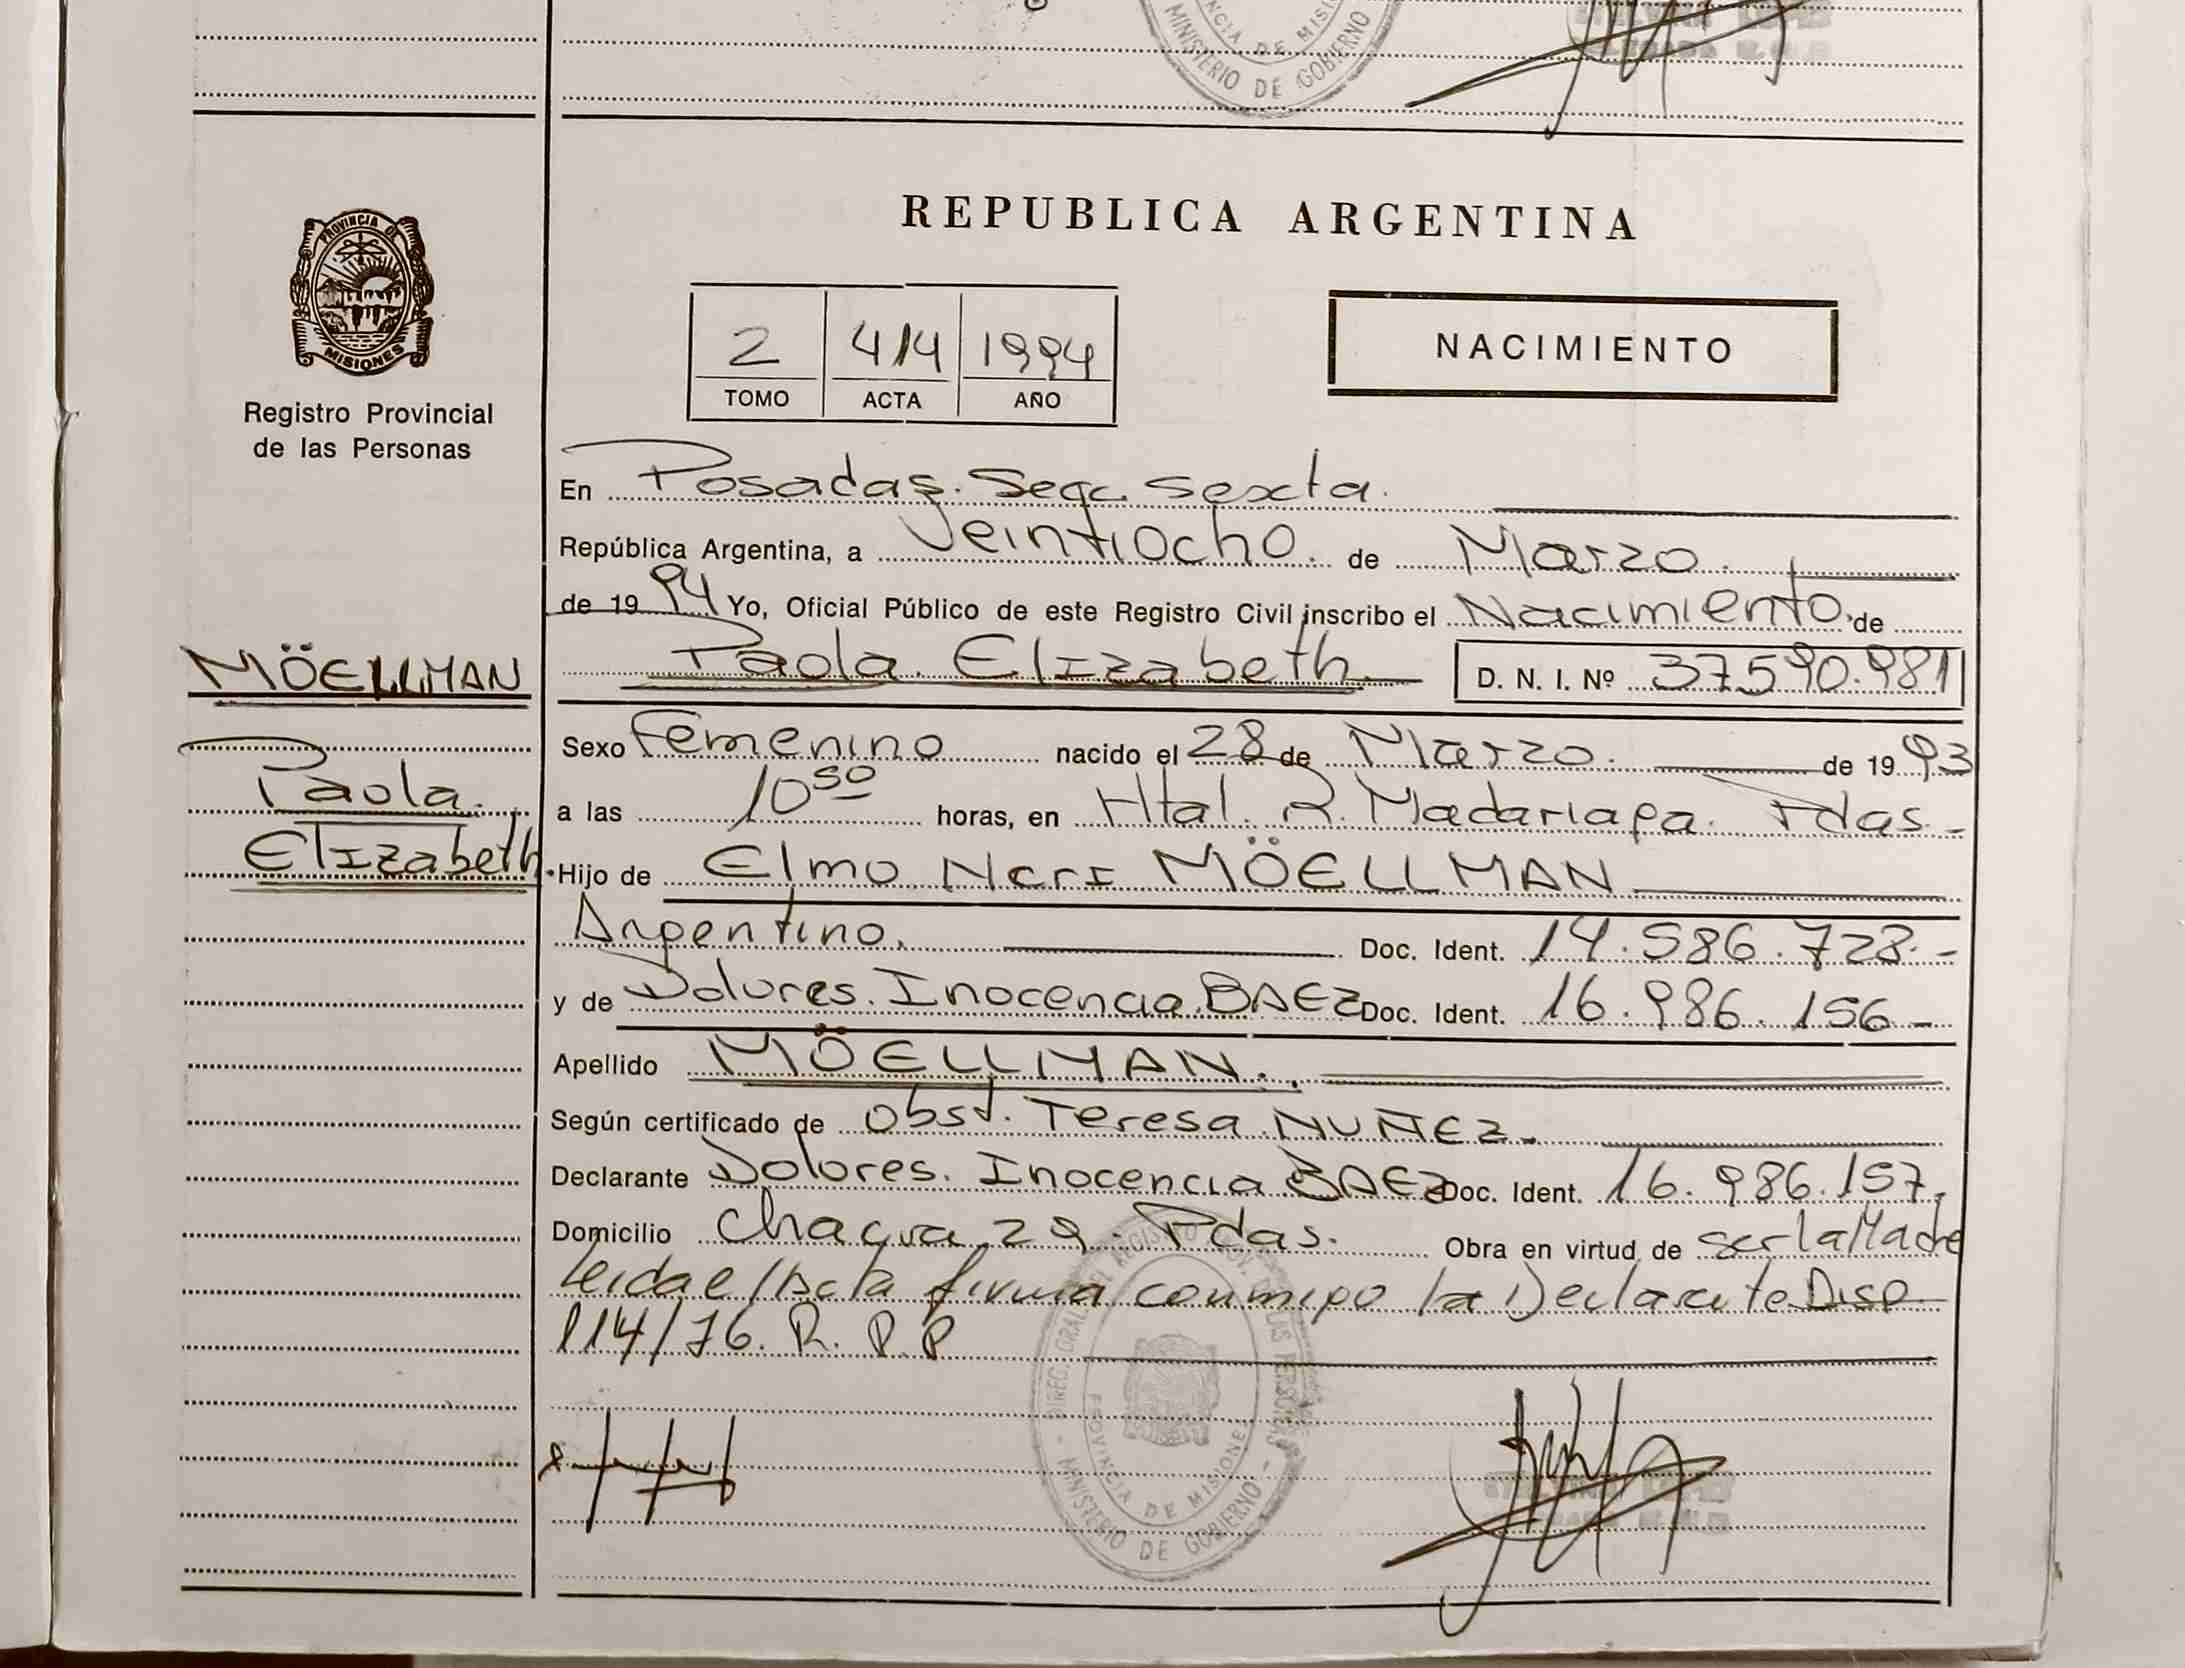 PROVINCIA DE MISIONES
MINISTERIO DE GOBIERNO
REPUBLICA ARGENTINA
PROVINCIA DE
MISIONES
Registro Provincial
de las Personas
2 414 1994
TOMO ACTA AÑO
NACIMIENTO
En Posadas. Secc. Sexta.
República Argentina, a Veintiocho. de Marzo.
de 1994 Yo, Oficial Público de este Registro Civil inscribo el Nacimiento. de
Paola. Elizabeth. D. N. I. Nº 37.590.981
MÖELLMAN
Paola.
Elizabeth
Sexo Femenino nacido el 28 de Marzo. de 1993
a las 10⁵⁰ horas, en Htal. R. Madariaga. Pdas.-
Hijo de Elmo Neri MÖELLMAN
Argentino. Doc. Ident. 14.586.728.-
y de Dolores. Inocencia. BAEZ Doc. Ident. 16.986.156-
Apellido MÖELLMAN.
Según certificado de Obst. Teresa NUÑEZ.
Declarante Dolores. Inocencia BAEZ Doc. Ident. 16.986.157.
Domicilio Chacra 29. Pdas. Obra en virtud de ser la Madre
Leida e/Acta firma conmigo la Declarante Disp.
114/76. R. P. P
DIREC. GRAL. DEL REGISTRO PROV. DE LAS PERSONAS
PROVINCIA DE MISIONES
MINISTERIO DE GOBIERNO